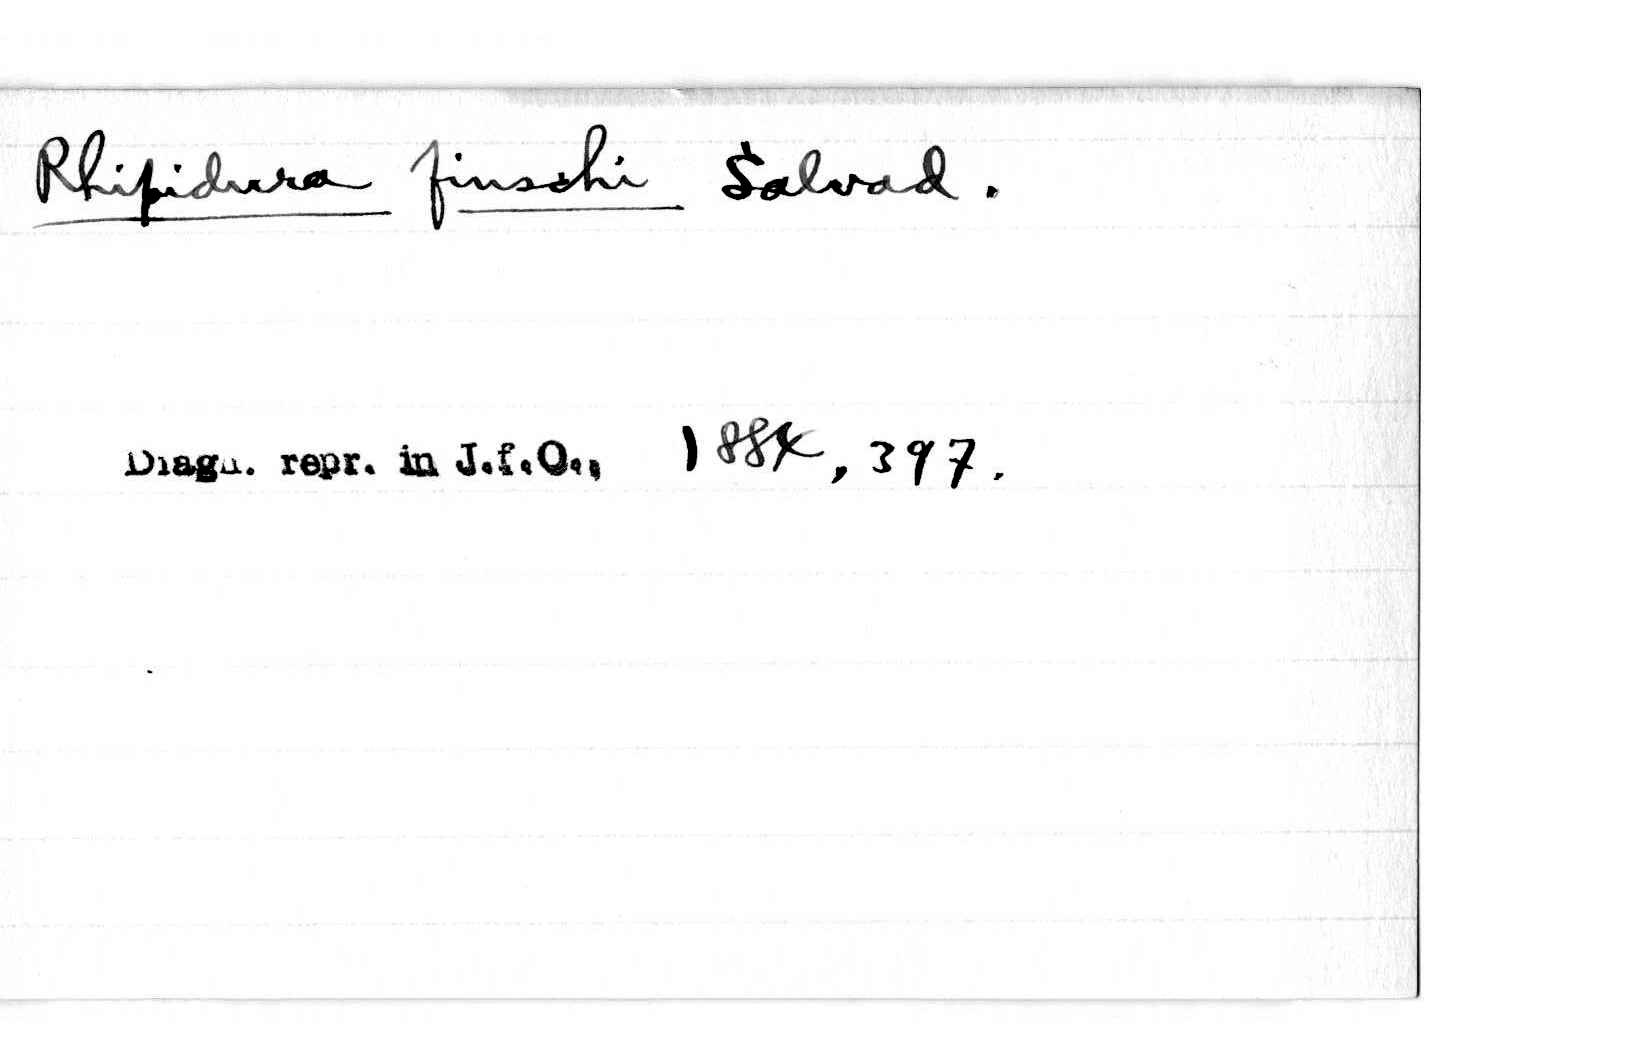 Rhipidura finschi Salvad.
Diagn. repr. in J.f.O., 1884, 397.